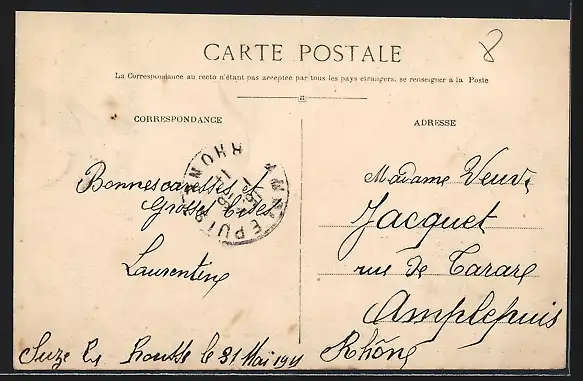 8
CARTE POSTALE
La Correspondance au recto n'étant pas acceptée par tous les pays étrangers, se renseigner à la Poste
CORRESPONDANCE
Bonnes caresses et
Grosses bises
Laurentine
Suze la Rousse le 31 Mai 1911
ADRESSE
Madame Veuve
Jacquet
rue de Tarare
Amplepuis
Rhône
AMPLEPUIS
RHONE